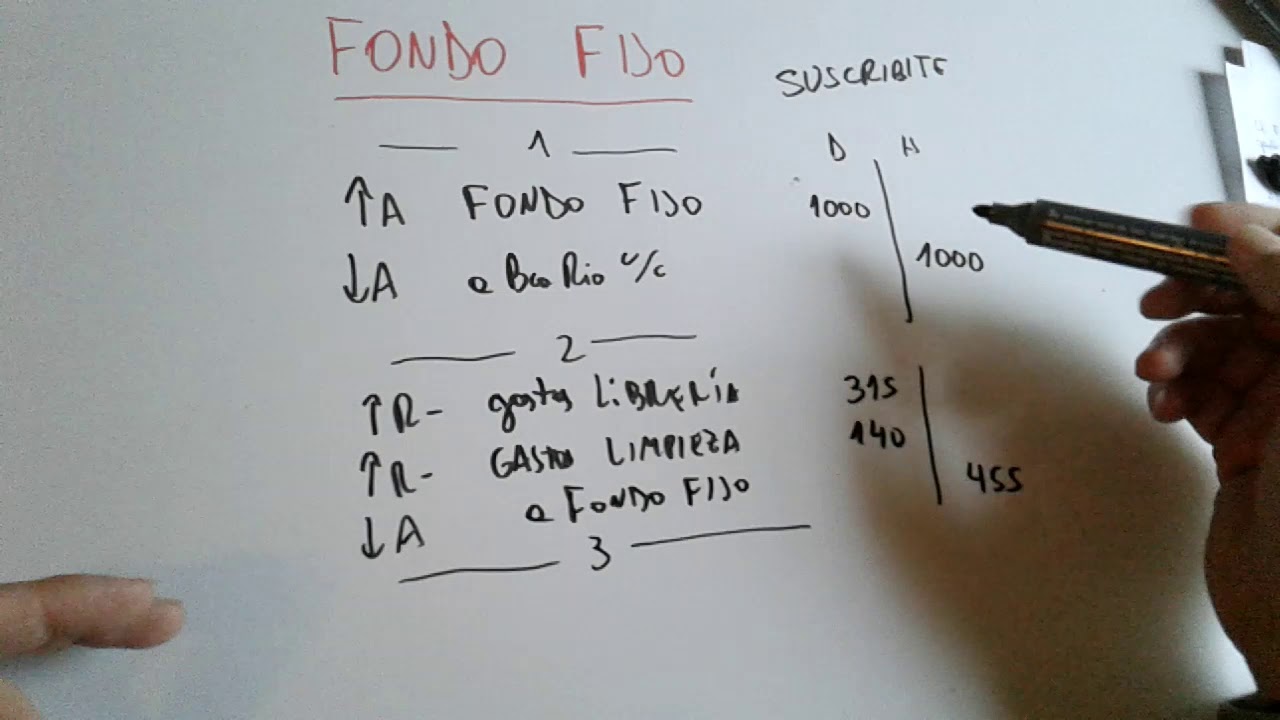 FONDO FIJO
SUSCRIBITE
1
D H
↑A FONDO FIJO 1000
↓A a Bco Rio c/c 1000
2
↑R- gastos LIBRERÍA 315
↑R- GASTOS LIMPIEZA 140
↓A a FONDO FIJO 455
3